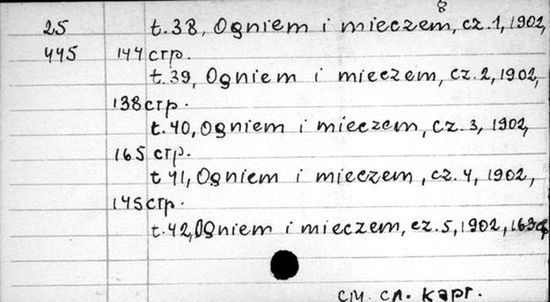 8
25 t.38, Ogniem i mieczem, cz.1, 1902,
445 144 стр.
t.39, Ogniem i mieczem, cz.2, 1902,
138 стр.
t.40, Ogniem i mieczem, cz.3, 1902,
165 стр.
t 41, Ogniem i mieczem, cz.4, 1902,
145 стр.
t.42, Ogniem i mieczem, cz.5, 1902, 163 с
см. сл. карт.